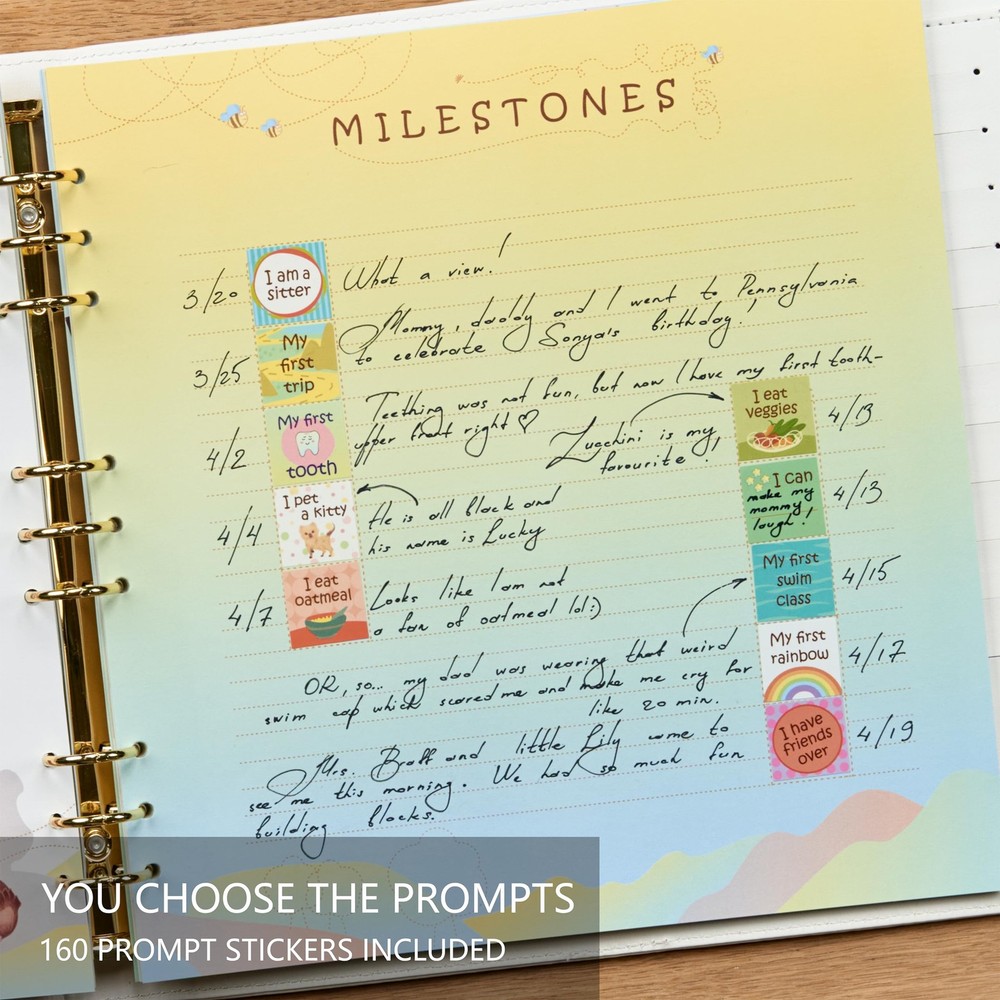 MILESTONES
3/20
I am a
sitter
What a view!
3/25
My
first
trip
Mommy, daddy and I went to Pennsylvania
to celebrate Sonya's birthday!
4/2
My first
tooth
Teething was not fun, but now I have my first tooth-
upper front right ♡
4/4
I pet
a kitty
He is all black and
his name is Lucky
4/7
I eat
oatmeal
Looks like I am not
a fan of oatmeal lol:)
Zucchini is my
favourite!
I eat
veggies
4/13
I can
make my
mommy
laugh!
4/13
My first
swim
class
4/15
OK, so... my dad was wearing that weird
swim cap which scared me and make me cry for
like 20 min.
My first
rainbow
4/17
I have
friends
over
4/19
Mrs. Braff and little Lily came to
see me this morning. We had so much fun
building blocks.
YOU CHOOSE THE PROMPTS
160 PROMPT STICKERS INCLUDED